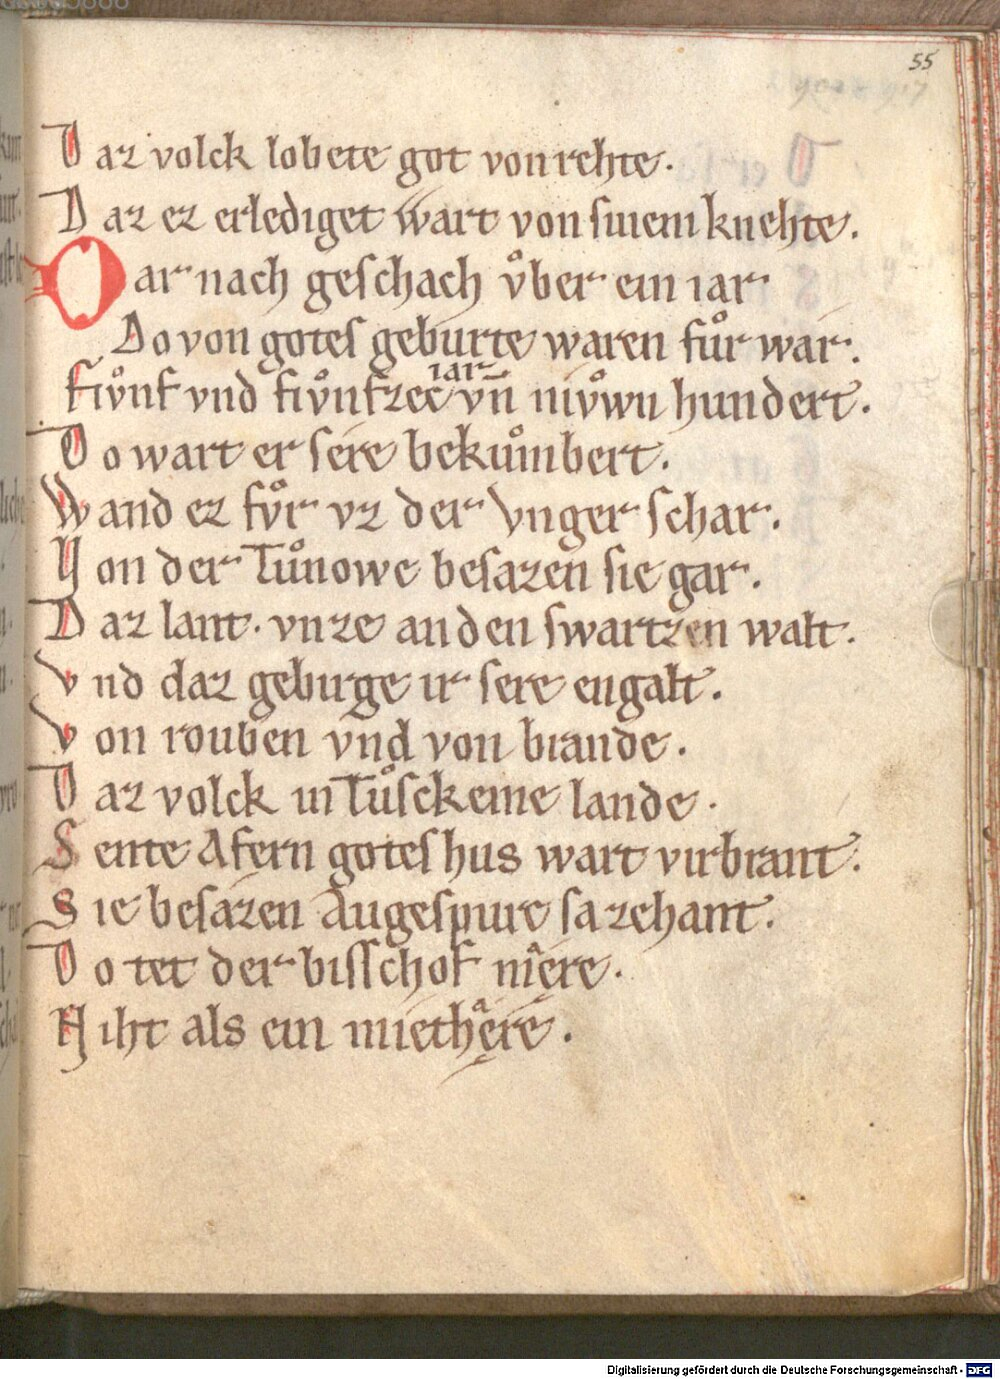 55
Daz volck lobete got von rehte.
Daz ez erlediget wart von sinem knehte.
Dar nach geschach vͦber ein iar
Do von gotes geburte waren fuͦr war.
fivͦnf vnd fivͦnfzec iar vn̄ nivͦwn hundert.
Do wart er sere bekuͦmbert.
Wand ez fvͦr vz der vnger schar.
Von der Tuͦnowe besazen sie gar.
Daz lant. vnze an den swartzen walt.
vnd daz gebirge ir sere engalt.
von rouben vnd von brande.
Daz volck in Tuͦsckeme lande.
Sente Afern gotes hus wart virbrant.
Sie besazen Augespure sa zehant.
Do tet der bisschof niere.
Niht als ein miethere.
Digitalisierung gefördert durch die Deutsche Forschungsgemeinschaft - DFG